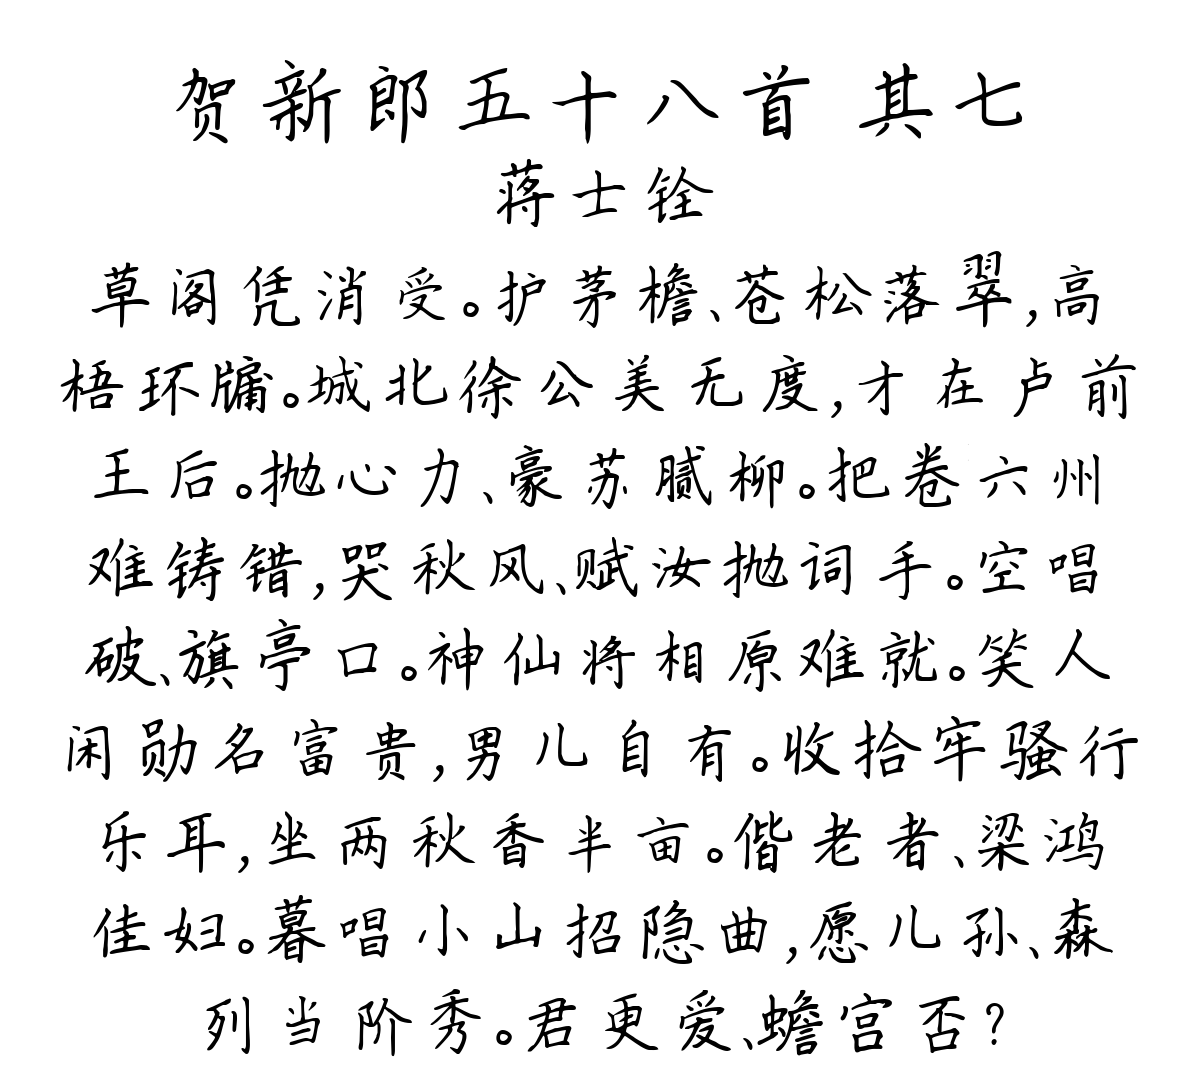 贺新郎五十八首 其七
蒋士铨
草阁凭消受。护茅檐、苍松落翠,高
梧环牖。城北徐公美无度,才在卢前
王后。抛心力、豪苏腻柳。把卷六州
难铸错,哭秋风、赋汝抛词手。空唱
破、旗亭口。神仙将相原难就。笑人
闲勋名富贵,男儿自有。收拾牢骚行
乐耳,坐两秋香半亩。偕老者、梁鸿
佳妇。暮唱小山招隐曲,愿儿孙、森
列当阶秀。君更爱、蟾宫否?